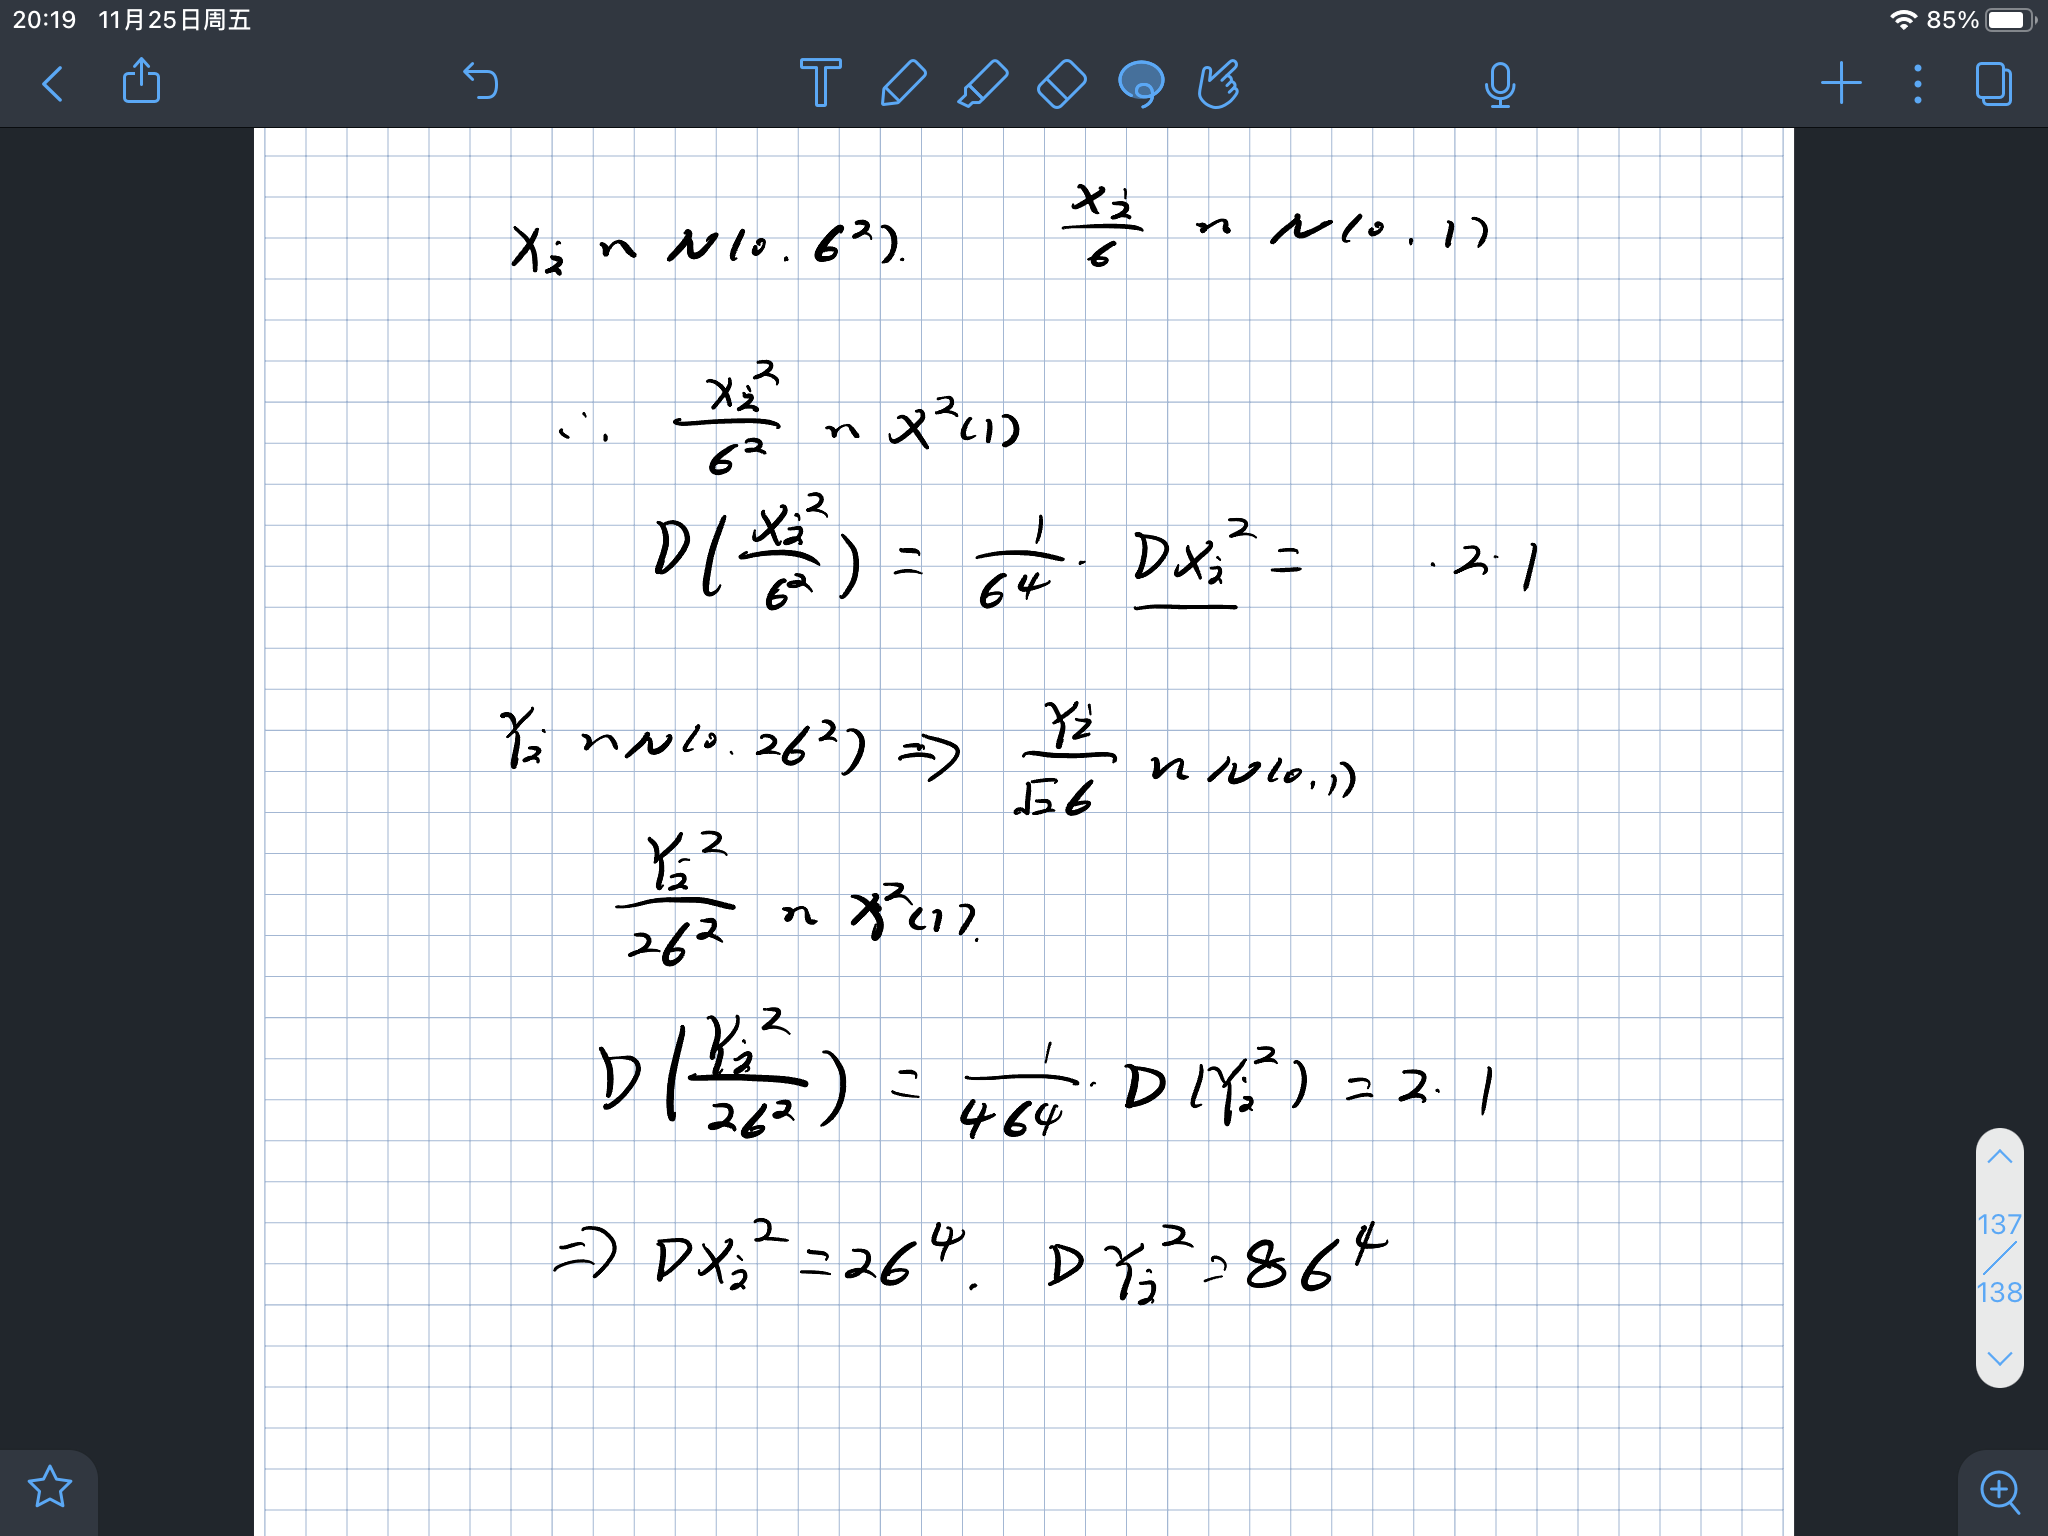 20:19 11月25日周五 85%
Xᵢ ~ N(0, σ²). Xᵢ/σ ~ N(0, 1)
∴ Xᵢ²/σ² ~ χ²(1)
D(Xᵢ²/σ²) = 1/σ⁴ · DXᵢ² = · 2 · 1
Yᵢ ~ N(0, 2σ²) ⇒ Yᵢ/√2σ ~ N(0, 1)
Yᵢ²/2σ² ~ χ²(1).
D(Yᵢ²/2σ²) = 1/4σ⁴ · D(Yᵢ²) = 2 · 1
⇒ DXᵢ² = 2σ⁴. DYᵢ² = 8σ⁴
137
138